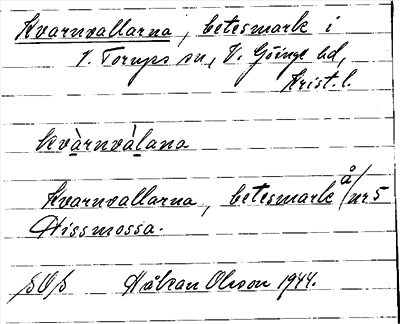 Kvarnvallarna, betesmark i
V. Torups sn, V. Göinge hd,
Krist. l.
kvàrnvàlana
Kvarnvallarna, betesmark å nr 5
Hissmossa.
Håkan Olsson 1944.